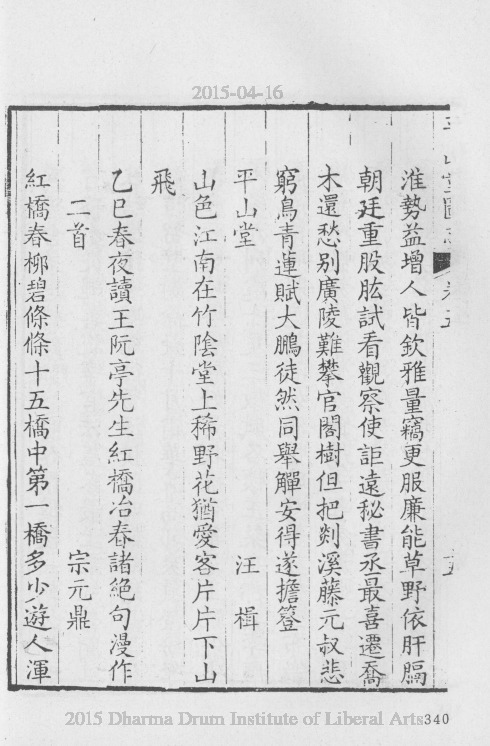 2015-04-16
淮勢益增人皆欽雅量竊更服廉能草野依肝膈
朝廷重股肱試看觀察使詎遠秘書丞最喜遷喬
木還愁別廣陵難攀官閣樹但把剡溪藤元叔悲
窮鳥青蓮賦大鵬徒然同舉觶安得遂擔簦
平山堂 汪楫
山色江南在竹陰堂上稀野花猶愛客片片下山
飛
乙巳春夜讀王阮亭先生紅橋冶春諸絕句漫作
二首 宗元鼎
紅橋春柳碧條條十五橋中第一橋多少遊人渾
2015 Dharma Drum Institute of Liberal Arts
340